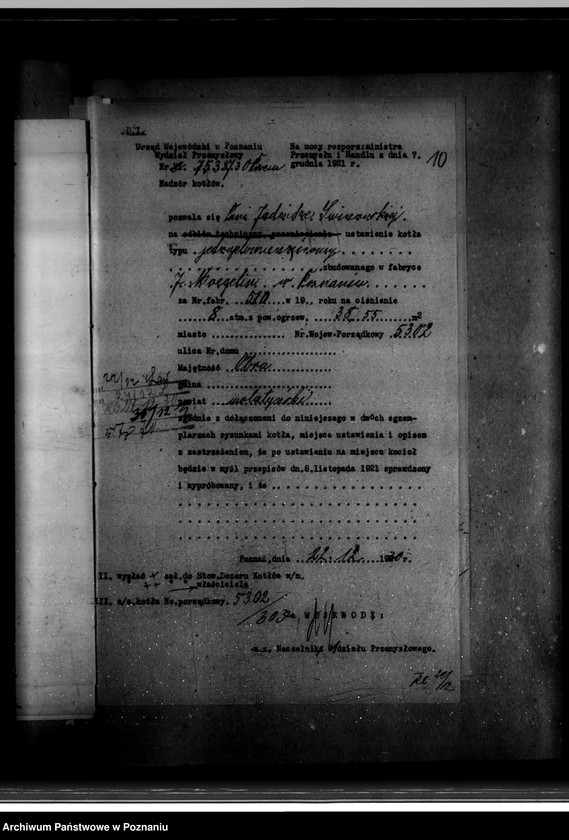 Urząd Wojewódzki w Poznaniu
Wydział Przemysłowy
Nadzór kotłów.
Na mocy rozporz.ministra
Przemysłu i Handlu z dnia 7.
grudnia 1921 r.
10
pozwala się Pani Jadwidze
na odbiór techniczny, przeniesienie ustawienie kotła
typu
zbudowanego w fabryce
w Poznaniu
za Nr.fabr. 510 w 19.. roku na ciśnienie
8 atm.z pow.ogrzew. 38.55 m2
miasto Nr.Wojew.Porządkowy 5302
ulica Nr.domu
Majętność Obra
gmina
powiat wolsztyński
zgodnie z dołączonemi do niniejszego w dwóch egzem-
plarzach rysunkami kotła, miejsca ustawienia i opisem
z zastrzeżeniem, że po ustawieniu na miejscu kocioł
będzie w myśl przepisów dn.8.listopada 1921 sprawdzony
i wypróbowany, i że
Poznań, dnia 22.12. 1930 r.
II. wysłać zał.do Stow.Dozoru Kotłów w/m.
właściciela
III. a/a.kotła No.porządkowy. 5302
za WOJEWODĘ:
Naczelnik Wydziału Przemysłowego.
Archiwum Państwowe w Poznaniu